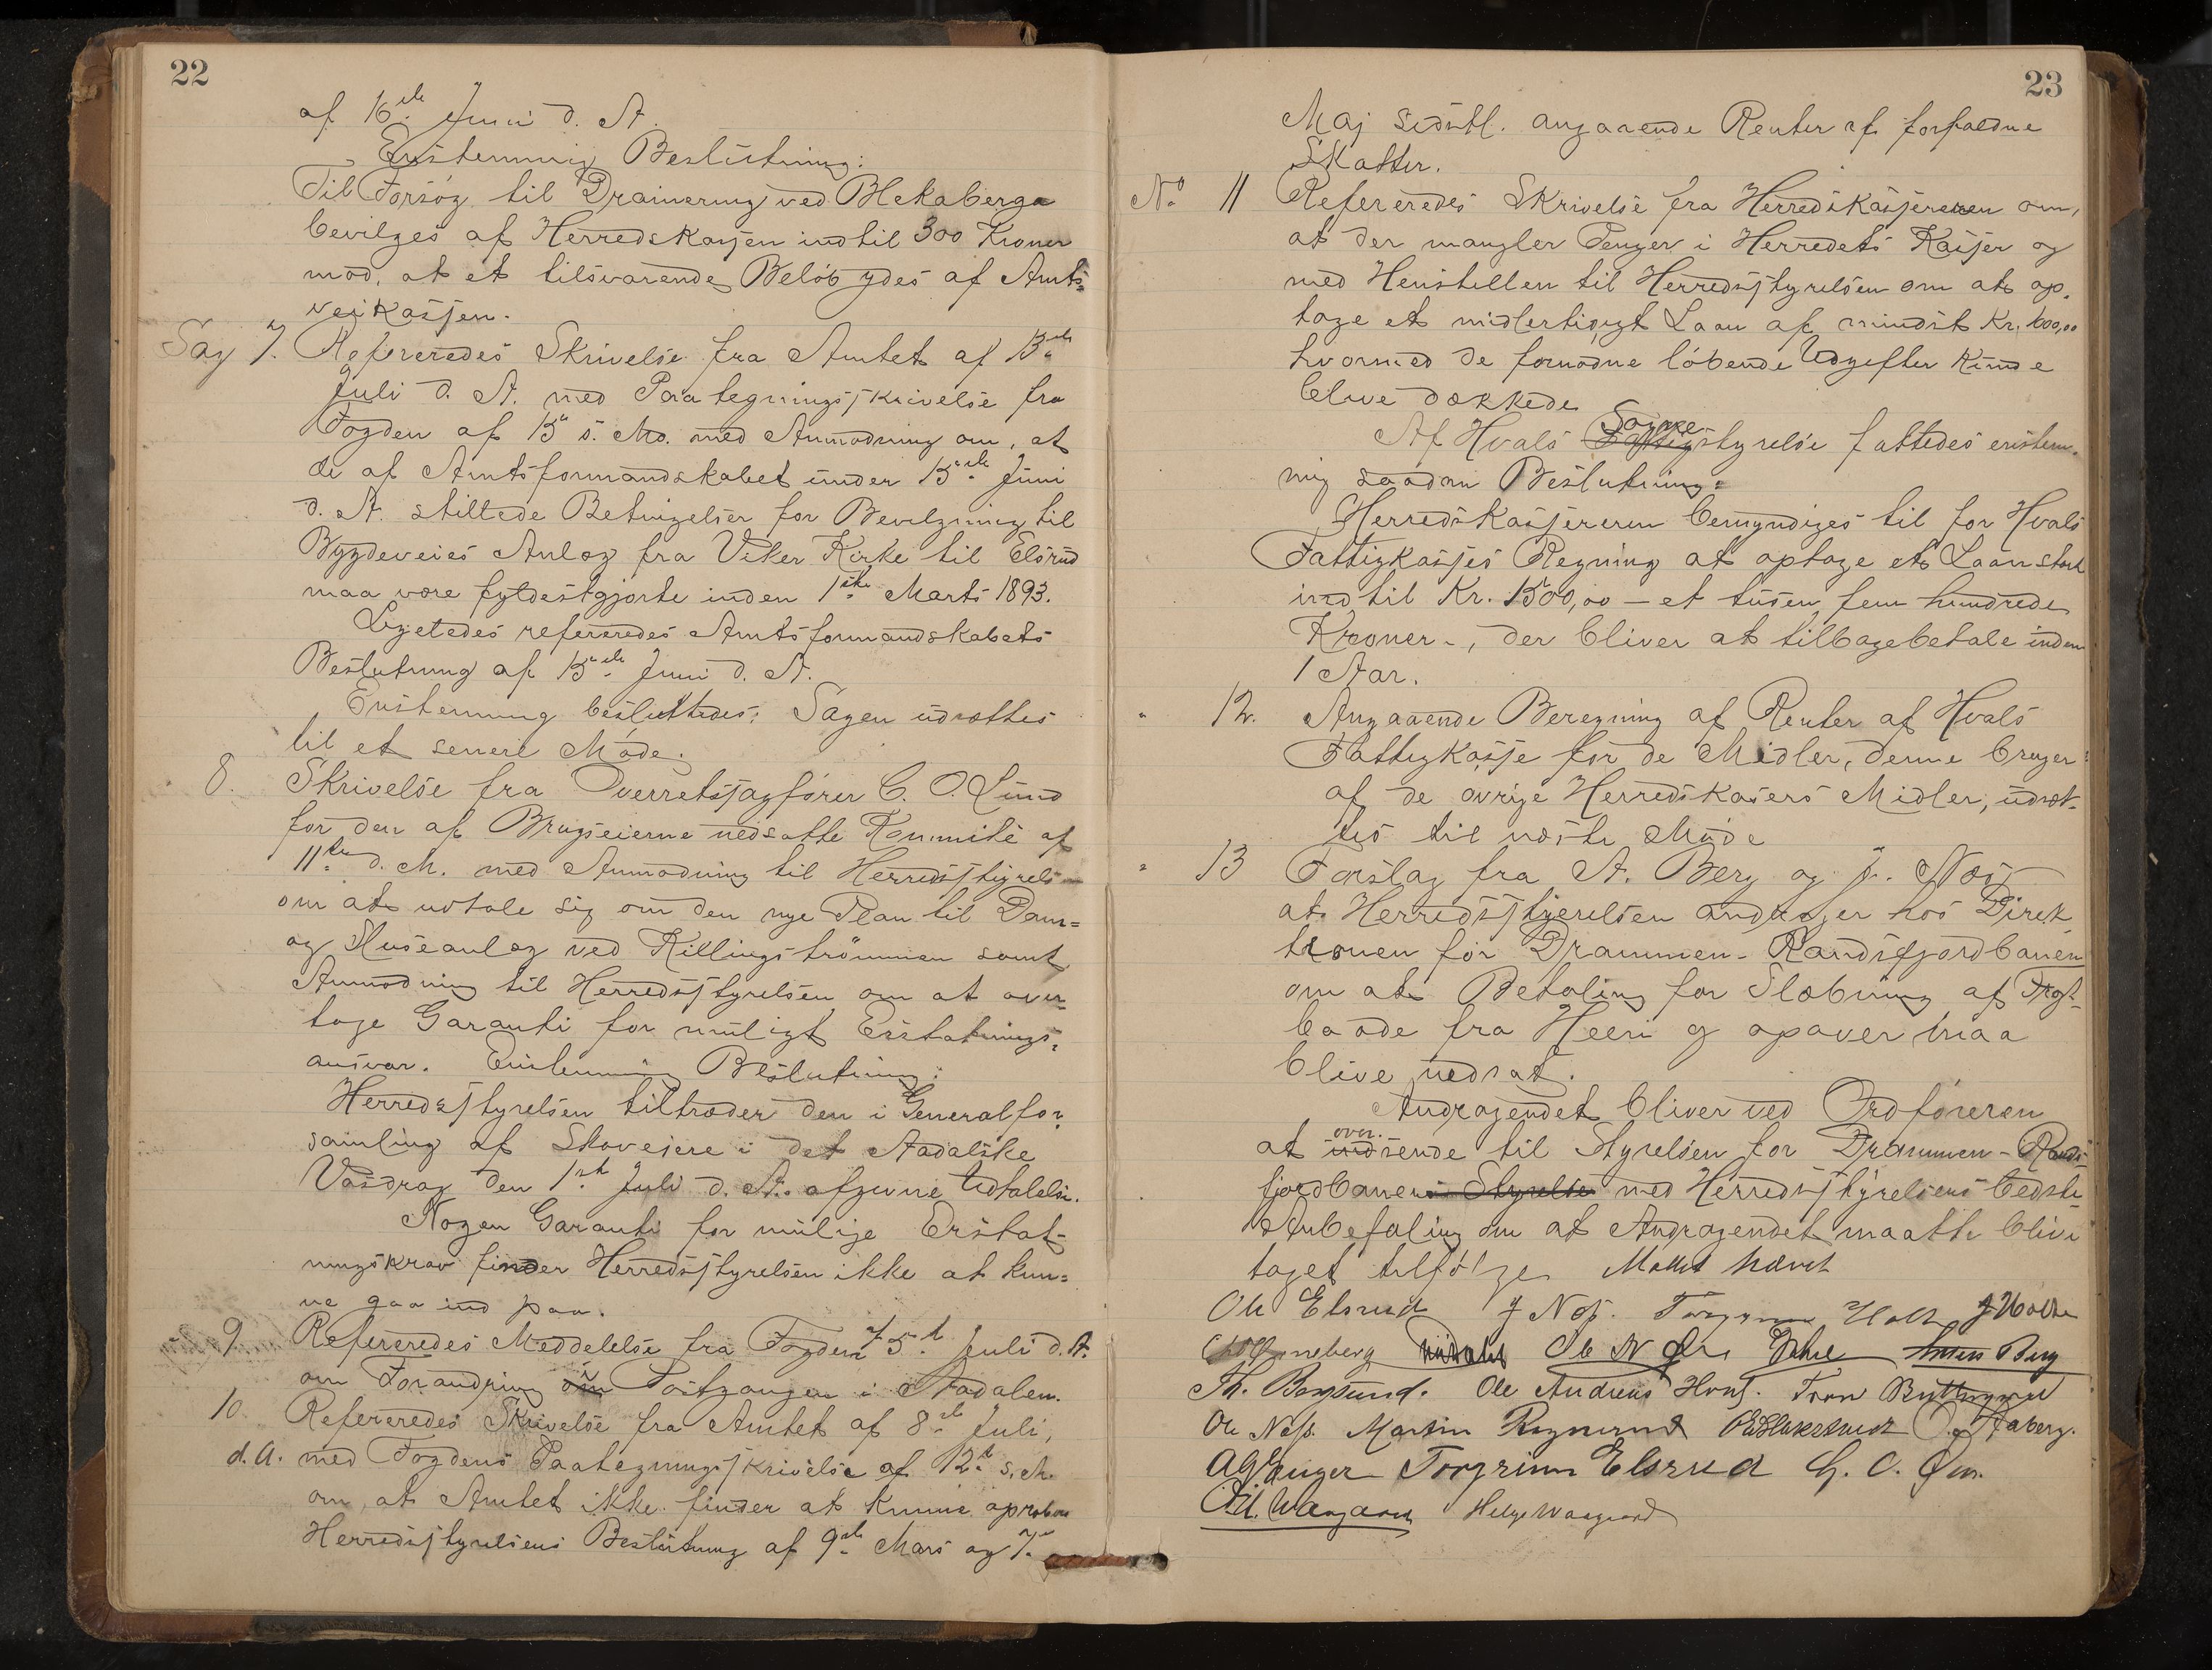 22
af 16de Juni d. A.
Enstemmig Beslutning:
Til Forsøg til Drainering ved Blekaberga
bevilges af Herredskassen indtil 300 Kroner
mod, at et tilsvarende Beløb ydes af Amts-
veikassen.
Sag 7. Refereredes Skrivelse fra Amtet af 13de
Juli d. A. med Paategningsskrivelse fra
Fogden af 15 s. Md. med Anmodning om, at
de af Amtsformandskabet under 15de Juni
d. A. stillede Betingelser for Bevilgning til
Bygdeveies Anlæg fra Viker Kirke til Elsrud
maa være fyldestgjorte inden 1ste Marts 1893.
Ligeledes refereredes Amtsformandskabets
Beslutning af 15de Juni d. A.
Enstemmig besluttedes: Sagen udsættes
til et senere Møde.
8. Skrivelse fra Overretssagfører C. O. Lund
for den af Brugseierne nedsatte Kommité af
11te d. M. med Anmodning til Herredsstyrelsen
om at udtale sig om den nye Plan til Dam-
og Sluseanlæg ved Killingstrømmen samt
Anmodning til Herredsstyrelsen om at over-
tage Garanti for muligt Erstatnings-
ansvar. Enstemmig Beslutning:
Herredsstyrelsen tiltræder den i Generalfor-
samling af Skoveiere i det Aadalske
Vasdrag den 1ste Juli d. A. afgivne Udtalelse.
Nogen Garanti for mulige Erstat-
ningskrav finder Herredsstyrelsen ikke at kun-
ne gaa ind paa.
9. Refereredes Meddelelse fra Fogden af 5te Juli d. A.
om Forandring i Postgangen i Aadalen.
10. Refereredes Skrivelse fra Amtet af 8de Juli,
d. A. med Fogdens Paategningsskrivelse af 12te s. M.
om, at Amtet ikke finder at kunne aprobere
Herredsstyrelsens Beslutning af 9de Mars og 7de
23
Maj sidstl. angaaende Renter af forfaldne
Skatter.
No 11 Refereredes Skrivelse fra Herredskassereren om,
at der mangler Penger i Herredets Kasser og
med Henstillen til Herredsstyrelsen om at op-
tage et midlertidigt Laan af mindst Kr.
hvormed de fornødne løbende Udgifter kunde
blive dækkede
Af Hvals Sognestyrelse fattedes enstem-
mig saadan Beslutning:
Herredskassereren bemyndiges til for Hvals
Fattigkasses Regning at optage et Laan stort
indtil Kr. 1500,00 – et tusen fem hundrede
Kroner –, der bliver at tilbagebetale inden
1 Aar.
" 12. Angaaende Beregning af Renter af Hvals
Fattigkasse for de Midler, denne bruger
af de øvrige Herredskassers Midler, udsæt-
tes til næste Møde
" 13 Forslag fra A. Berg og J. Næss
at Herredsstyrelsen andrager hos Direk
tionen for Drammen-Randsfjordbanen
om at Betaling for Slæbning af Fragt-
baade fra Heen og opaver maa
blive nedsat.
Andragendet bliver ved Ordføreren
at oversende til Styrelsen for Drammen-Rands-
fjordbanen med Herredsstyrelsens bedste
Anbefaling om at Andragendet maatte blive
taget tilfølge. Mødet hævet
Ole Elsrud J Næss. Torgrim Holte J Holte
Ole N Anton Berg
Th. Bergsund. Ole Andreas
Ole Næss. Martin
Torgrim Elsrud G. O.
Helge Waagaard